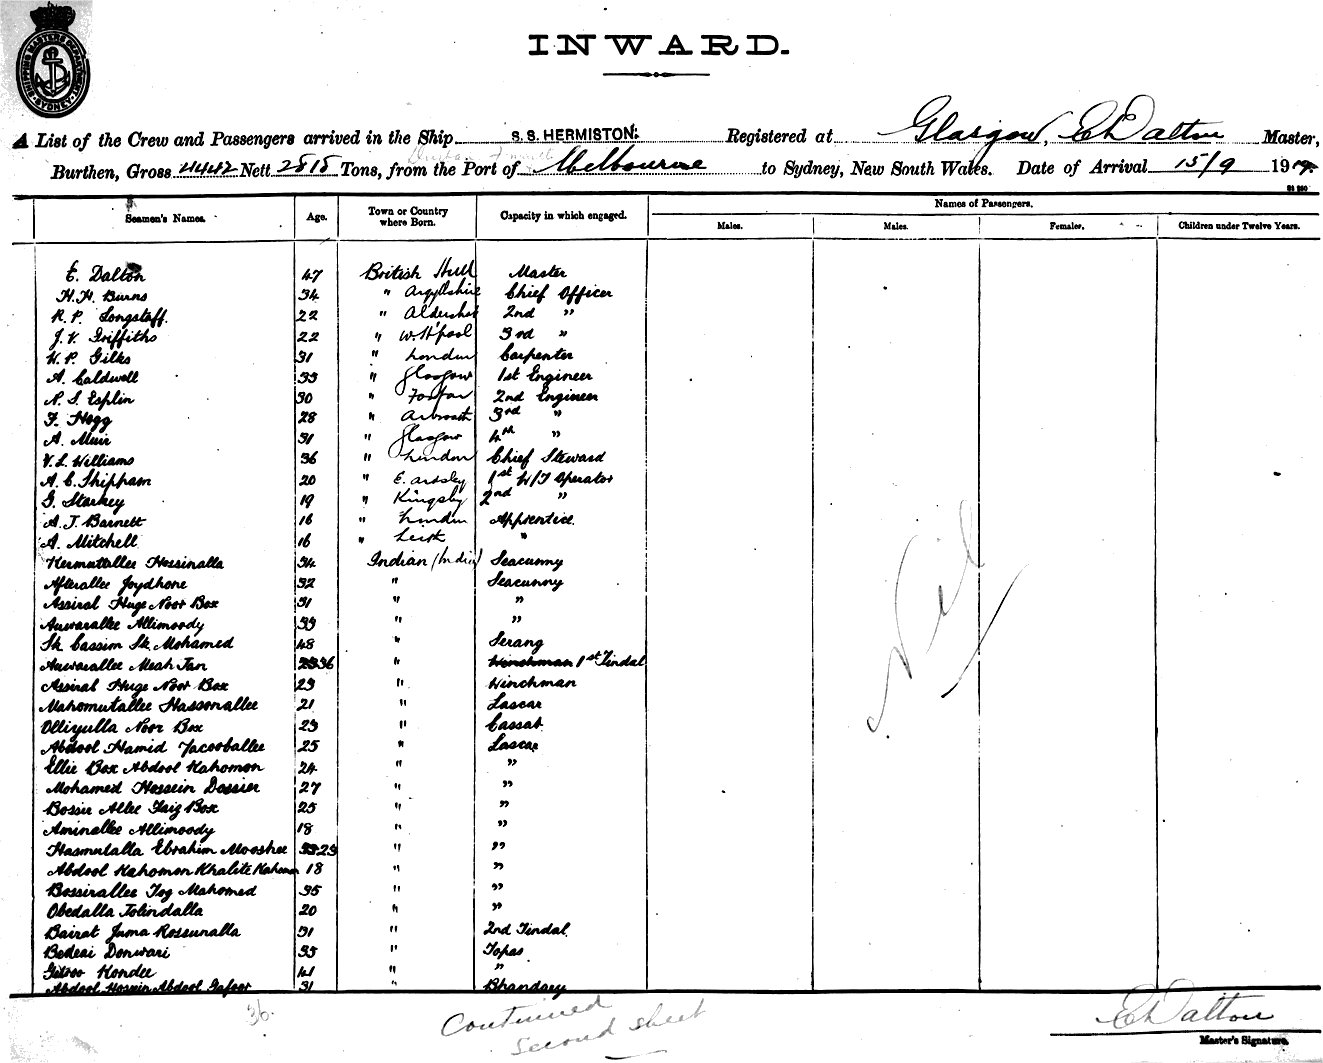 SHIPPING MASTERS DEPARTMENT SYDNEY
INWARD.
A List of the Crew and Passengers arrived in the Ship S.S. HERMISTON. Registered at Glasgow, E Dalton Master,
Burthen, Gross 4442 Nett 2818 Tons, from the Port of Melbourne to Sydney, New South Wales. Date of Arrival 15/9 1919.
Seamen's Names. Age. Town or Country where Born. Capacity in which engaged. Names of Passengers.
Males. Males. Females. Children under Twelve Years.
E. Dalton 47 British Hull Master
H.H. Burns 34 " Argyllshire Chief Officer
R.P. Longstaff. 22 " Aldershot 2nd "
J.V. Griffiths 22 " W.H'pool 3rd "
W.P. Gilks 31 " London Carpenter
A. Caldwell 33 " Glasgow 1st Engineer
N.S. Esplin 30 " Forfar 2nd Engineer
F. Hogg 28 " Arbroath 3rd "
A. Muir 31 " Glasgow 4th "
V.L. Williams 36 " London Chief Steward
A.C. Shippam 20 " E. Ardsley 1st W/T Operator
G. Starkey 19 " Kingsby 2nd "
A.J. Barnett 16 " London Apprentice.
A. Mitchell 16 " Leith "
Kermuttallee Hossinalla 34 Indian (India) Seacunny
Afterallee Joydhone 32 " Seacunny
Assiral Huge Noor Box 31 " "
Auwarallee Allimoody 33 " "
Sk Cassim Sk. Mohamed 48 " Serang
Auwarallee Meah Jan 36 " Winchman 1st Tindal
Assiral Huge Noor Box 23 " Winchman
Mahomutallee Hassonallee 21 " Lascar
Olliyulla Noor Box 23 " Cassab
Abdool Hamid Jacooballee 25 " Lascar
Ellie Box Abdool Rahomon 24 " "
Mohamed Hossein Dossier 27 " "
Bossir Allee Faiz Box 25 " "
Aminallee Allimoody 18 " "
Hasmutalla Ebrahim Mooshee 23 " "
Abdool Rahomon Khalite Rahomon 18 " "
Bossirallee Tog Mahomed 35 " "
Obedalla Tolindalla 20 " "
Bairat Jama Rossunalla 31 " 2nd Tindal.
Bedeai Donwari 33 " Topas
Kondee 41 " "
Abdool Hosein Abdool Gafoor 31 " Bhandary
Nil
36.
Continued
second sheet
E Dalton
Master's Signature.